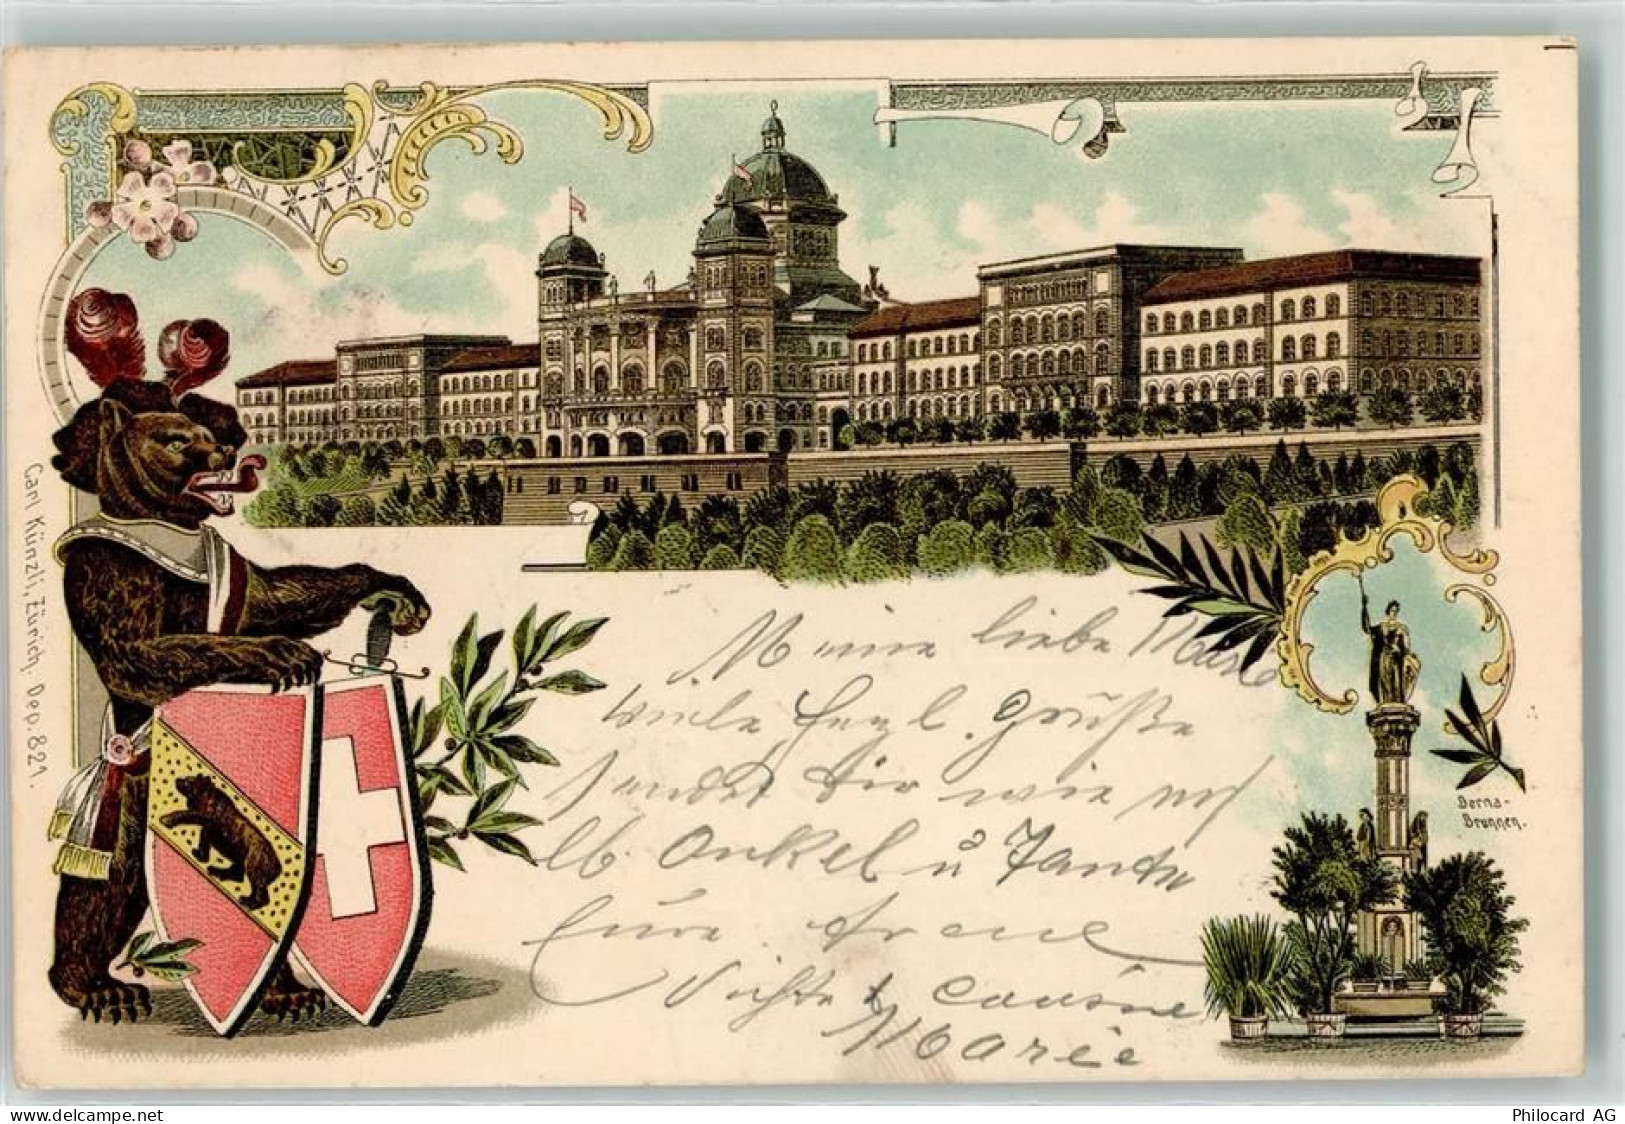 Carl Künzli, Zürich, Dep. 821.
Meine liebe Marie
viele herzl. Grüße
sendet Dir wie auch
lb. Onkel u Tante
Eure. treue
Nichte & Cousine
Marie
Berna-
Brunnen.
www.delcampe.net
Philocard AG